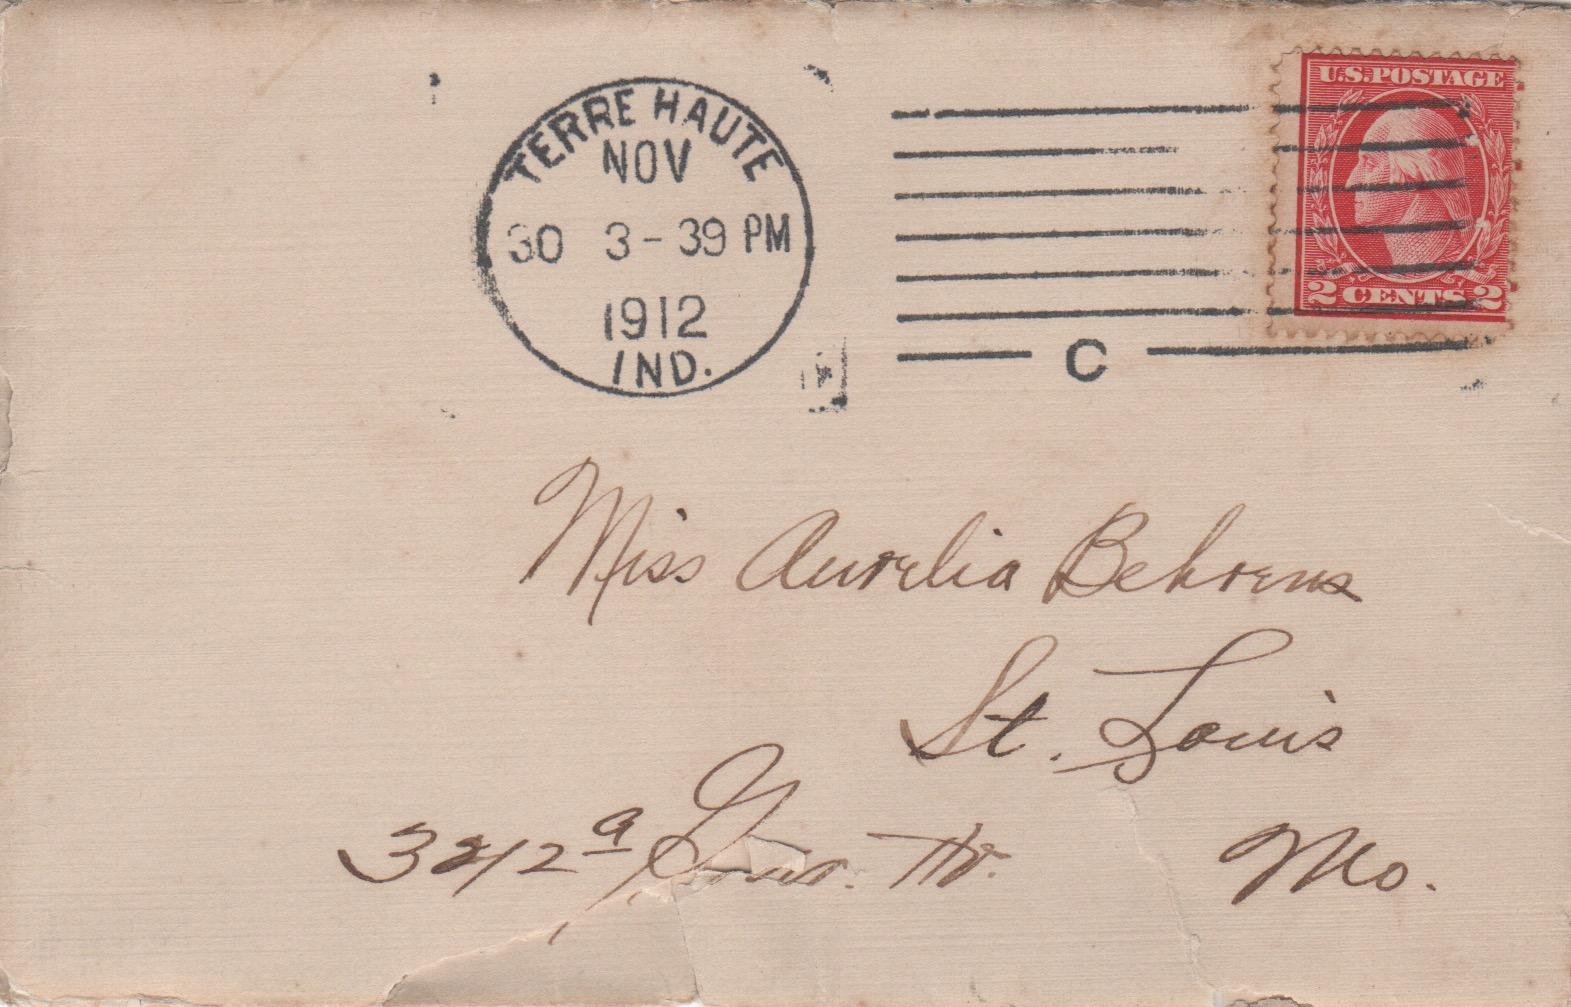 TERRE HAUTE
NOV
30 3-39 PM
1912
IND.
C
U.S.POSTAGE
2 CENTS 2
Miss Aurelia Behrens
St. Louis
3812a
Mo.